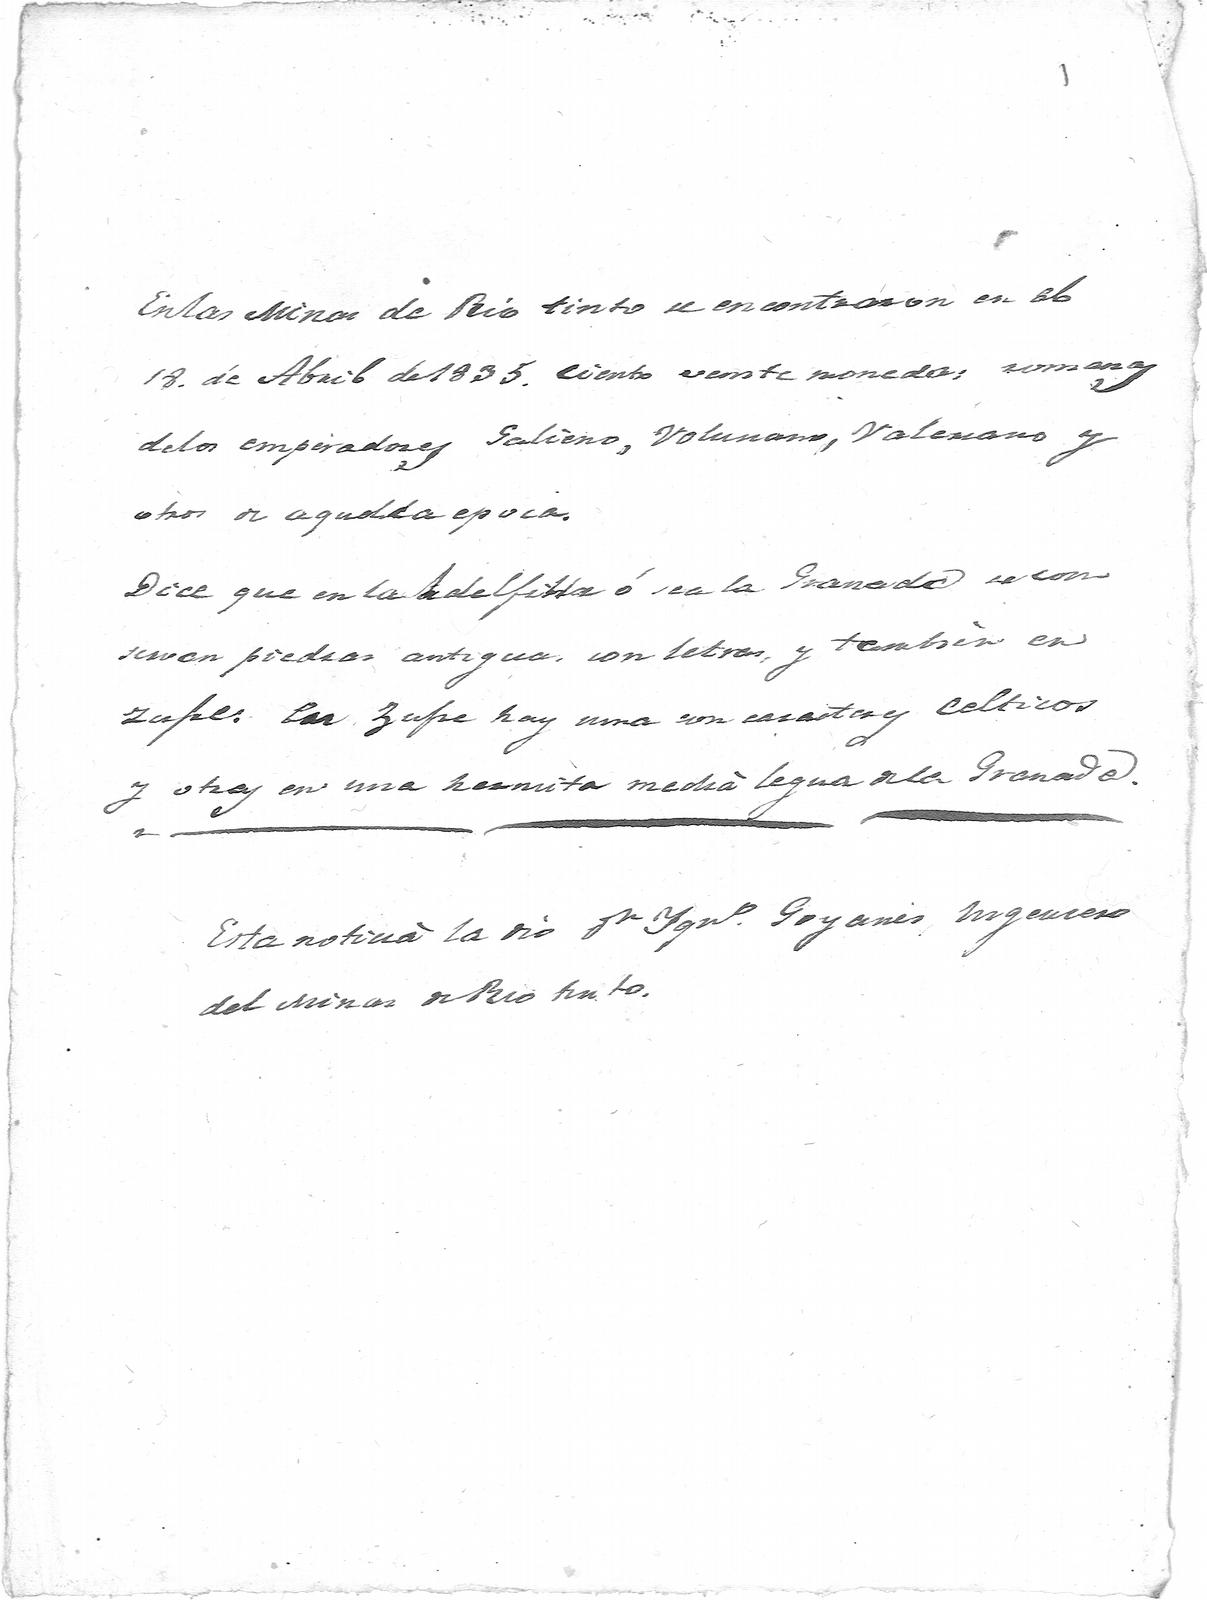 En las Minas de Rio tinto se encontraron en el
18. de Abril de 1835. ciento veinte monedas romanas
de los emperadores Galieno, Volusiano, Valeriano y
otros de aquella epoca.
Dice que en la Adelfilla ó sea la Granada se con
servan piedras antiguas con letras, y tambien en
Zufre. En Zufre hay una con caracteres Celticos
y otras en una hermita media legua de la Granada.
Esta noticia la dio Dn Ygno. Goyanes, Ingeniero
del Minas de Rio tinto.